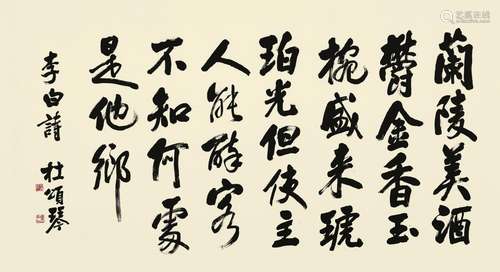 蘭陵美酒
鬱金香玉
椀盛来琥
珀光但使主
人能醉客
不知何處
是他鄉
李白詩 杜頌琴